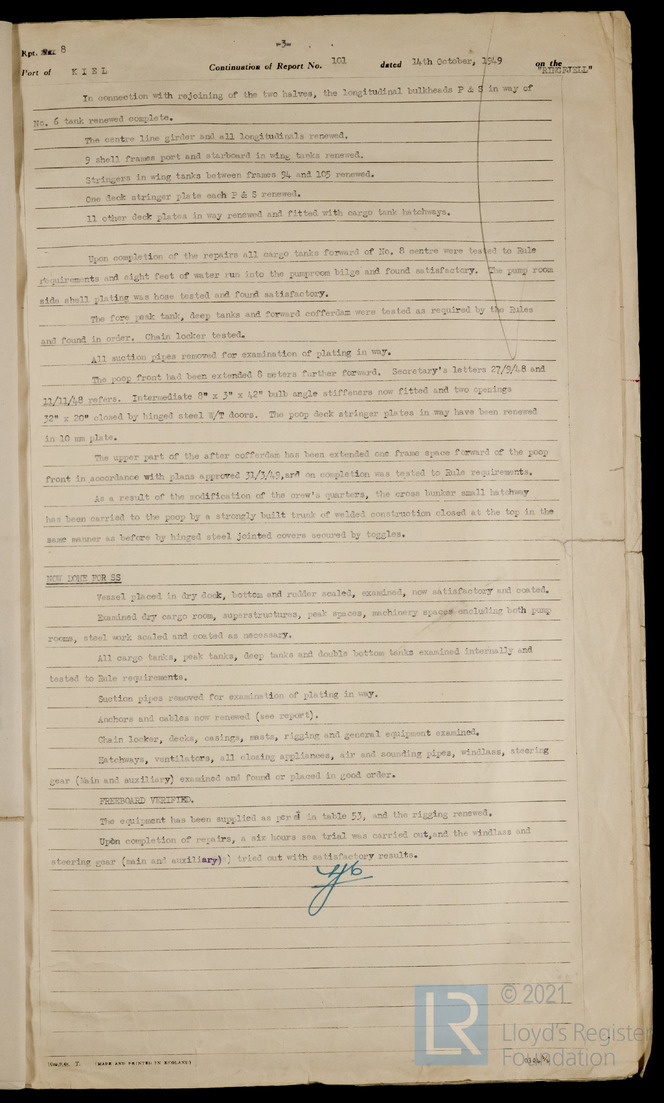 -3-
Rpt. 8
Port of KIEL Continuation of Report No. 101 dated 14th October, 1949 on the "RINGFJELL"
In connection with rejoining of the two halves, the longitudinal bulkheads P & S in way of
No. 6 tank renewed complete.
The centre line girder and all longitudinals renewed.
9 shell frames port and starboard in wing tanks renewed.
Stringers in wing tanks between frames 94 and 105 renewed.
One deck stringer plate each P & S renewed.
11 other deck plates in way renewed and fitted with cargo tank hatchways.
Upon completion of the repairs all cargo tanks forward of No. 8 centre were tested to Rule
requirements and eight feet of water run into the pumproom bilge and found satisfactory. The pump room
side shell plating was hose tested and found satisfactory.
The fore peak tank, deep tanks and forward cofferdam were tested as required by the Rules
and found in order. Chain locker tested.
All suction pipes removed for examination of plating in way.
The poop front had been extended 8 meters further forward. Secretary's letters 27/9/48 and
11/11/48 refers. Intermediate 8" x 3" x 42" bulb angle stiffeners now fitted and two openings
32" x 20" closed by hinged steel W/T doors. The poop deck stringer plates in way have been renewed
in 10 mm plate.
The upper part of the after cofferdam has been extended one frame space forward of the poop
front in accordance with plans approved 31/3/49,and on completion was tested to Rule requirements.
As a result of the modification of the crew's quarters, the cross bunker small hatchway
has been carried to the poop by a strongly built trunk of welded construction closed at the top in the
same manner as before by hinged steel jointed covers secured by toggles.
NOW DONE FOR SS
Vessel placed in dry dock, bottom and rudder scaled, examined, now satisfactory and coated.
Examined dry cargo room, superstructures, peak spaces, machinery spaces including both pump
rooms, steel work scaled and coated as necessary.
All cargo tanks, peak tanks, deep tanks and double bottom tanks examined internally and
tested to Rule requirements.
Suction pipes removed for examination of plating in way.
Anchors and cables now renewed (see report).
Chain locker, decks, casings, masts, rigging and general equipment examined.
Hatchways, ventilators, all closing appliances, air and sounding pipes, windlass, steering
gear (Main and auxiliary) examined and found or placed in good order.
FREEBOARD VERIFIED.
The equipment has been supplied as per in table 53, and the rigging renewed.
Upon completion of repairs, a six hours sea trial was carried out,and the windlass and
steering gear (main and auxiliary) tried out with satisfactory results.
(MADE AND PRINTED IN ENGLAND)
LR
© 2021
Lloyd's Register
Foundation